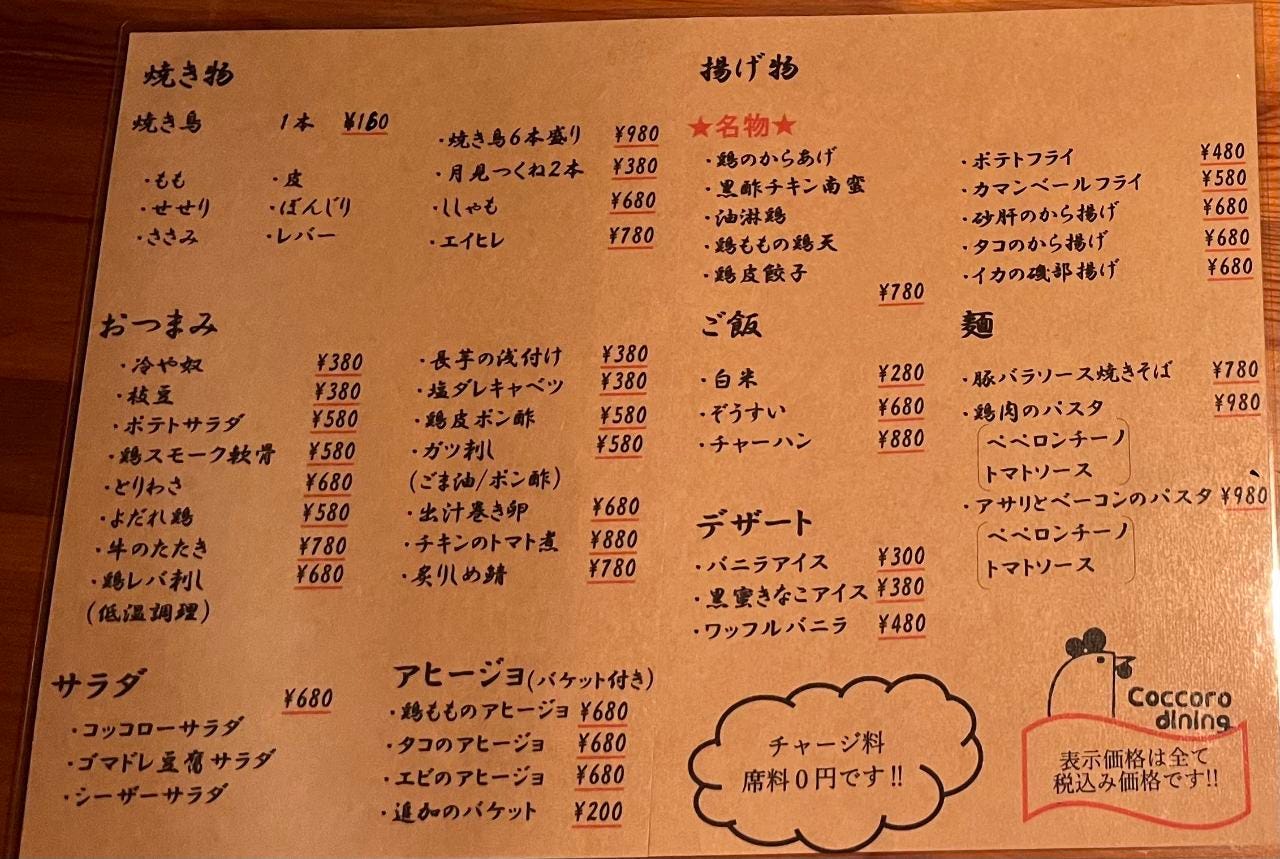 焼き物
焼き鳥 1本 ¥160
・もも ・皮
・せせり ・ぼんじり
・ささみ ・レバー
・焼き鳥6本盛り ¥980
・月見つくね2本 ¥380
・ししゃも ¥680
・エイヒレ ¥780
おつまみ
・冷や奴 ¥380
・枝豆 ¥380
・ポテトサラダ ¥580
・鶏スモーク軟骨 ¥580
・とりわさ ¥680
・よだれ鶏 ¥580
・牛のたたき ¥780
・鶏レバ刺し ¥680
(低温調理)
・長芋の浅付け ¥380
・塩ダレキャベツ ¥380
・鶏皮ポン酢 ¥580
・ガツ刺し ¥580
(ごま油/ポン酢)
・出汁巻き卵 ¥680
・チキンのトマト煮 ¥880
・炙りしめ鯖 ¥780
サラダ
¥680
・コッコローサラダ
・ゴマドレ豆腐サラダ
・シーザーサラダ
アヒージョ(バケット付き)
・鶏もものアヒージョ ¥680
・タコのアヒージョ ¥680
・エビのアヒージョ ¥680
・追加のバケット ¥200
揚げ物
★名物★
・鶏のからあげ
・黒酢チキン南蛮
・油淋鶏
・鶏ももの鶏天
・鶏皮餃子
¥780
・ポテトフライ ¥480
・カマンベールフライ ¥580
・砂肝のから揚げ ¥680
・タコのから揚げ ¥680
・イカの磯部揚げ ¥680
ご飯
・白米 ¥280
・ぞうすい ¥680
・チャーハン ¥880
麺
・豚バラソース焼きそば ¥780
・鶏肉のパスタ ¥980
ペペロンチーノ
トマトソース
・アサリとベーコンのパスタ ¥980
ペペロンチーノ
トマトソース
デザート
・バニラアイス ¥300
・黒蜜きなこアイス ¥380
・ワッフルバニラ ¥480
チャージ料
席料0円です!!
Coccoro
dining
表示価格は全て
税込み価格です!!